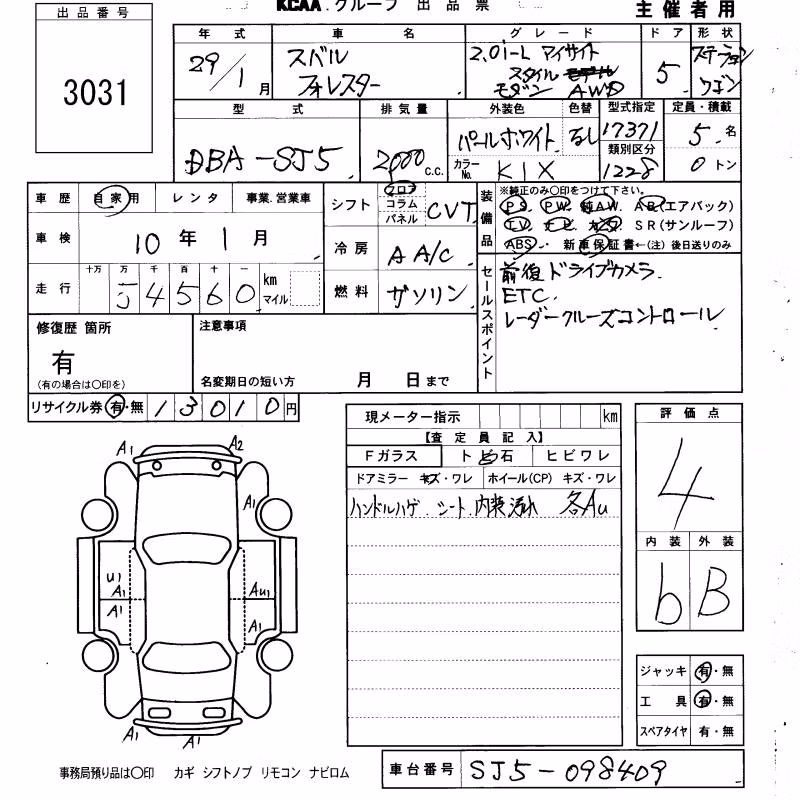 出品番号
3031
KCAA.グループ 出品票
主催者用
年式 車名 グレード ドア 形状
29/1月
スバル
フォレスター
2.0i-L アイサイト
スタイル
モダン AWD
5
ステーション
ワゴン
型式 排気量 外装色 色替 型式指定 定員・積載
DBA-SJ5
2000 c.c.
パールホワイト なし
17371
5名
類別区分
カラーNo. K1X
1228
0トン
車歴 自家用 レンタ 事業.営業車
シフト フロア コラム パネル CVT
車検 10年1月
冷房 AA/C
走行 十万 万 千 百 十 一
54560 km マイル
燃料 ガソリン
装備品
※純正のみ〇印をつけて下さい。
PS. PW. 純AW. AB(エアバック)
TV. ナビ. カワ. SR(サンルーフ)
ABS. 新車保証書←(注)後日送りのみ
セールスポイント
前後ドライブカメラ.
ETC.
レーダークルーズコントロール
修復歴 箇所
有
(有の場合は〇印を)
注意事項
名変期日の短い方 月 日まで
リサイクル券 有・無 13010円
現メーター指示 km
【査定員記入】
Fガラス トビ石 ヒビワレ
ドアミラー キズ・ワレ ホイール(CP) キズ・ワレ
ハンドルハゲ. シート.内装汚れ 各Au
評価点
4
内装 外装
b B
A1 A2
A1
U1
A1 AU1
A1
A1
A1 A1
ジャッキ 有・無
工具 有・無
スペアタイヤ 有・無
事務局預り品は〇印 カギ シフトノブ リモコン ナビロム
車台番号 SJ5-098409